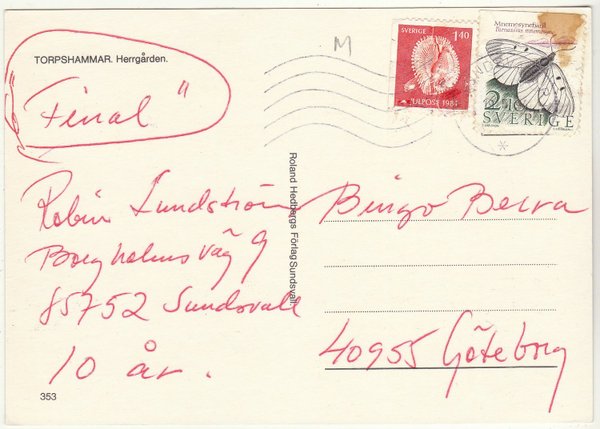 TORPSHAMMAR. Herrgården.
"Final"
Robin Lundström
Borgholmsväg 9
85752 Sundsvall
10 år.
353
Roland Hedbergs Förlag Sundsvall.
M
SVERIGE
1.40
JULPOST 1984
Mnemosynefjäril
Parnassius mnemosyne
2.10
SVERIGE
Bingo Berra
40955 Göteborg